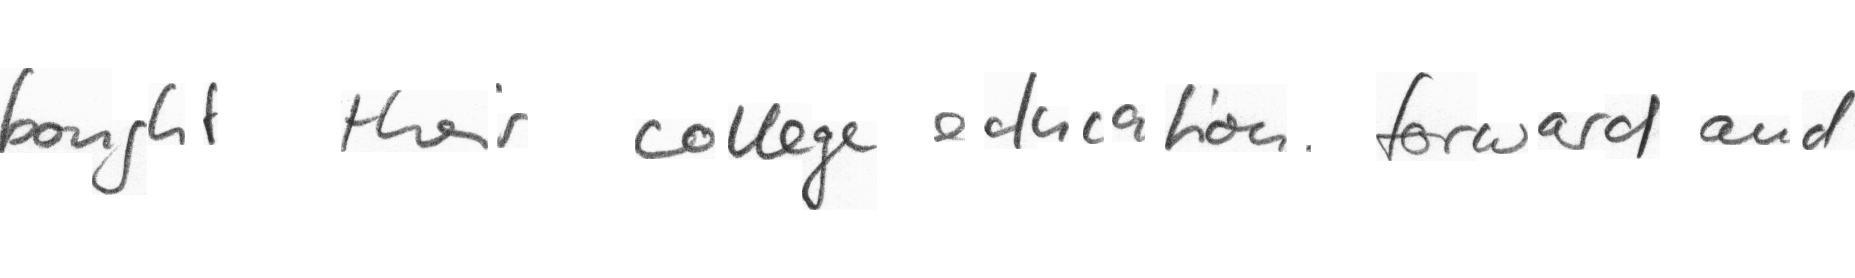 bought their college education. forward and